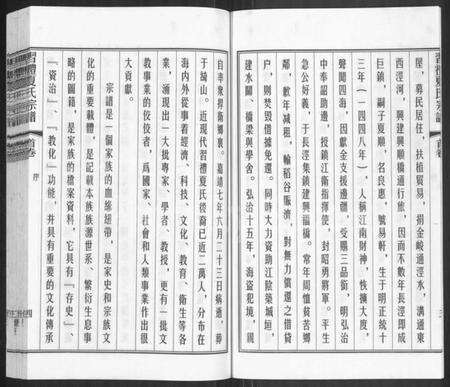 習禮夏氏宗譜
首卷
屋，募民居住，扶植貿易，捐金峻通涇水，溝通東
西涇河，興建興順橋通行旅，因而不數年長涇即成
巨鎮，嗣子夏順，名良惠，號易軒，生于明正統十
三年（一四四八年），人稱江南財神，恢擴大度，
聲聞四海，因獻金支援邊體，受賜三品銜，明弘治
中奉詔助邊，授鎮江衛指揮使，封昭勇將軍。平生
急公好義，于長涇集鎮建興福橋。常年周恤貧苦鄉
鄰，歉年減租，輸稻谷賑濟，對無力償還之借貸
户，則焚毁借據免還。同時大力資助江陰築城垣，
建水關、橋梁與學舍。弘治十五年，海盗犯境，賜
自率衆捍衛鄉裏。嘉靖七年六月二十三日病逝，葬
于坳山。近現代習禮夏氏後裔已近二萬人，分布在
海内外從事着經濟、科技、文化、教育、衛生等各
業，涌現出一大批專家、學者、教授，更有一批文
教事業的佼佼者，爲國家、社會和人類事業作出很
大貢獻。
宗譜是一個家族的血緣紐帶，是家史和宗族文
化的重要載體，是記載本族族源世系、繁衍生息事
略的圖籍，是家族的檔案資料，它具有「存史」、
「資治」、「教化」功能，并具有重要的文化傳承
習禮夏氏宗譜
首卷
序